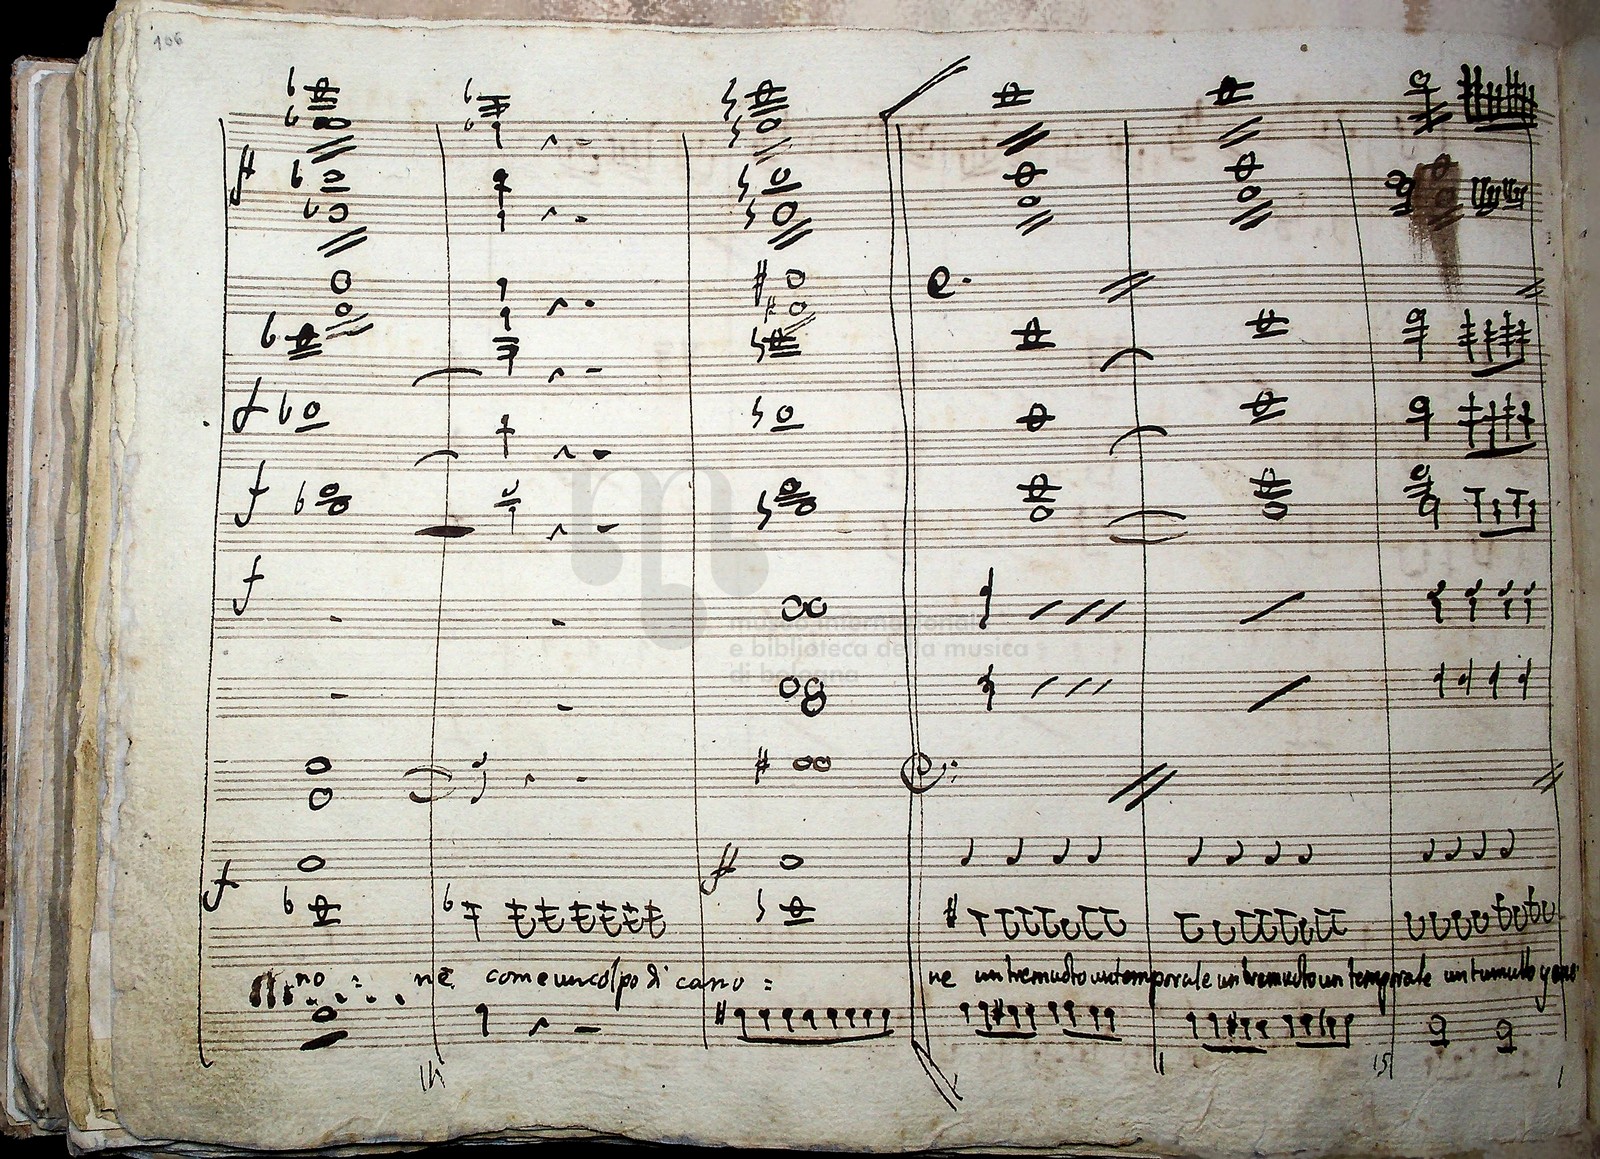 106
museo internazionale
e biblioteca della musica
di bologna
no : ne come un colpo di cano : ne un tremuoto un temporale un tremuoto un temporale un tumulto gene
14
15